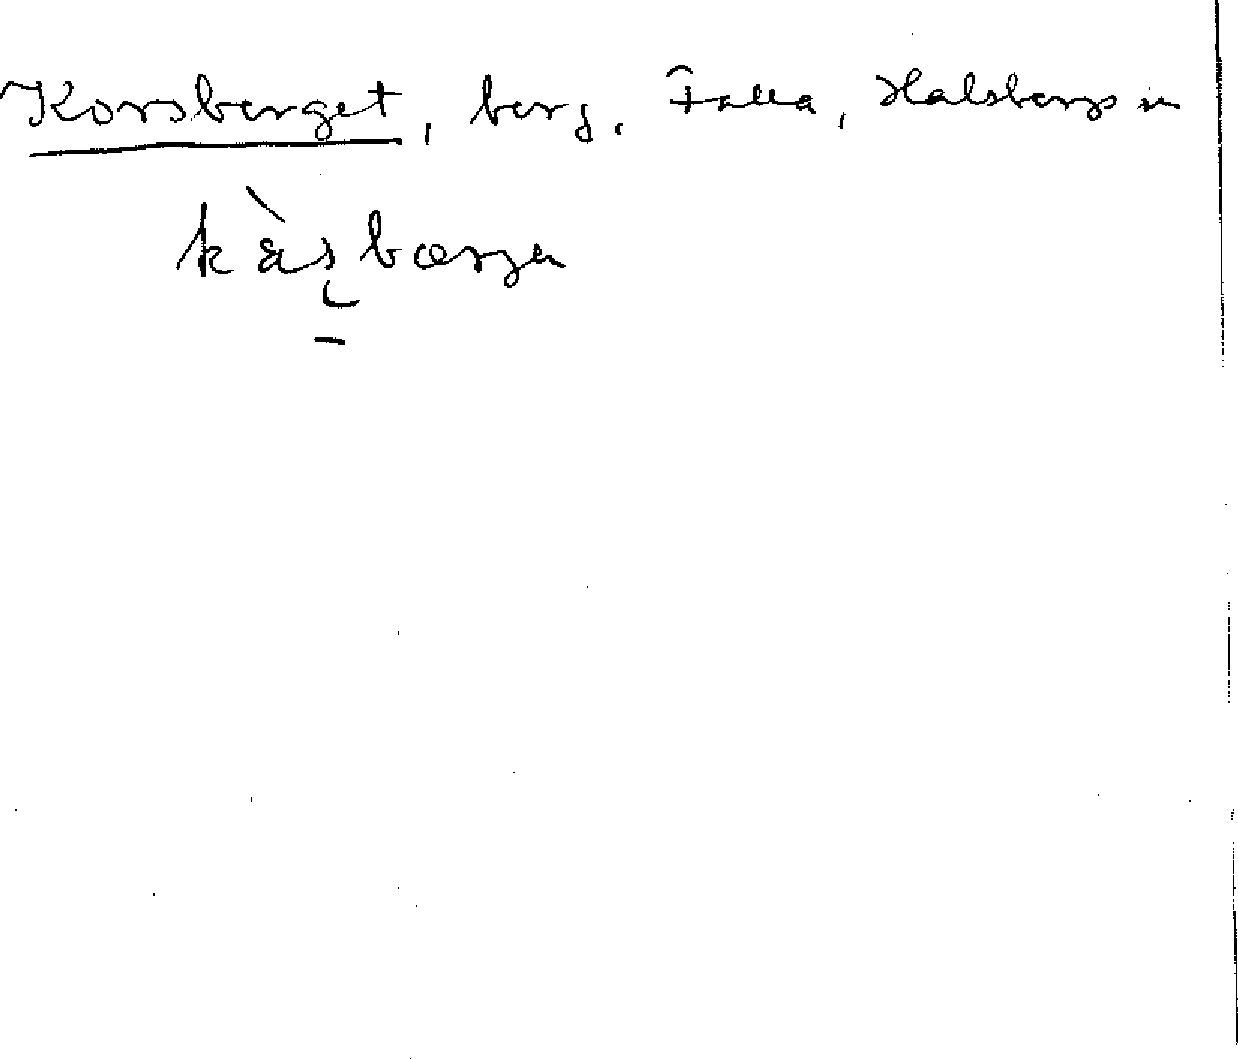 Korsberget, berg. Falla, Halsbergs sn
kàs̱bærjə